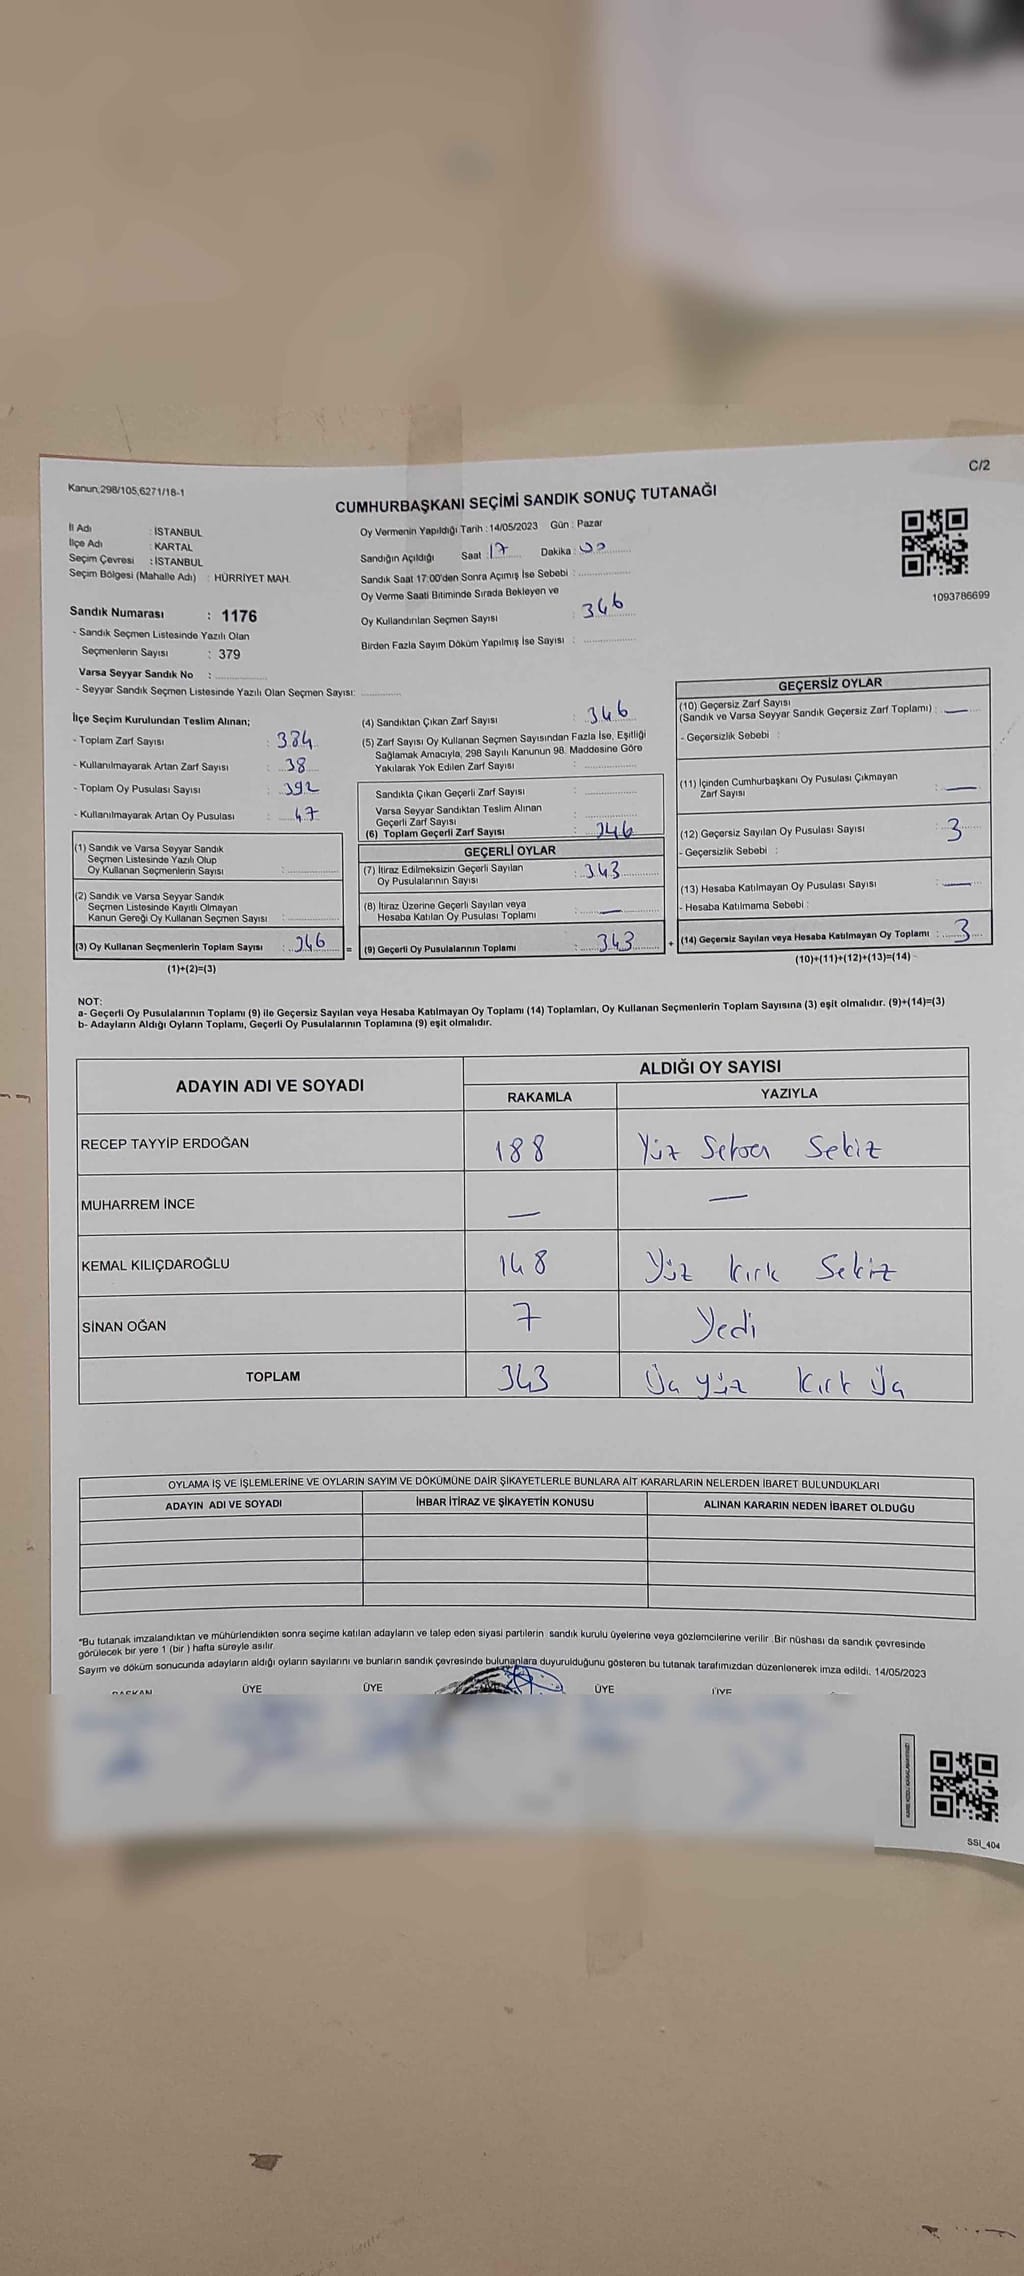 C/2
Kanun,298/105,6271/18-1
CUMHURBAŞKANI SEÇİMİ SANDIK SONUÇ TUTANAĞI
İl Adı : İSTANBUL
İlçe Adı : KARTAL
Seçim Çevresi : İSTANBUL
Seçim Bölgesi (Mahalle Adı) : HÜRRİYET MAH.
Sandık Numarası : 1176
- Sandık Seçmen Listesinde Yazılı Olan
Seçmenlerin Sayısı : 379
Varsa Seyyar Sandık No :
- Seyyar Sandık Seçmen Listesinde Yazılı Olan Seçmen Sayısı:
Oy Vermenin Yapıldığı Tarih : 14/05/2023 Gün : Pazar
Sandığın Açıldığı Saat : 17 Dakika : 00
Sandık Saat 17:00'den Sonra Açımış İse Sebebi :
Oy Verme Saati Bitiminde Sırada Bekleyen ve
Oy Kullandırılan Seçmen Sayısı : 346
Birden Fazla Sayım Döküm Yapılmış İse Sayısı :
1093786699
İlçe Seçim Kurulundan Teslim Alınan;
- Toplam Zarf Sayısı : 384
- Kullanılmayarak Artan Zarf Sayısı : 38
- Toplam Oy Pusulası Sayısı : 392
- Kullanılmayarak Artan Oy Pusulası : 47
(1) Sandık ve Varsa Seyyar Sandık
Seçmen Listesinde Yazılı Olup
Oy Kullanan Seçmenlerin Sayısı :
(2) Sandık ve Varsa Seyyar Sandık
Seçmen Listesinde Kayıtlı Olmayan
Kanun Gereği Oy Kullanan Seçmen Sayısı :
(3) Oy Kullanan Seçmenlerin Toplam Sayısı : 346 =
(1)+(2)=(3)
(4) Sandıktan Çıkan Zarf Sayısı : 346
(5) Zarf Sayısı Oy Kullanan Seçmen Sayısından Fazla İse, Eşitliği
Sağlamak Amacıyla, 298 Sayılı Kanunun 98. Maddesine Göre
Yakılarak Yok Edilen Zarf Sayısı :
Sandıkta Çıkan Geçerli Zarf Sayısı :
Varsa Seyyar Sandıktan Teslim Alınan
Geçerli Zarf Sayısı :
(6) Toplam Geçerli Zarf Sayısı : 346
GEÇERLİ OYLAR
(7) İtiraz Edilmeksizin Geçerli Sayılan
Oy Pusulalarının Sayısı : 343
(8) İtiraz Üzerine Geçerli Sayılan veya
Hesaba Katılan Oy Pusulası Toplamı : —
(9) Geçerli Oy Pusulalarının Toplamı : 343 +
GEÇERSİZ OYLAR
(10) Geçersiz Zarf Sayısı
(Sandık ve Varsa Seyyar Sandık Geçersiz Zarf Toplamı) : —
- Geçersizlik Sebebi :
(11) İçinden Cumhurbaşkanı Oy Pusulası Çıkmayan
Zarf Sayısı : —
(12) Geçersiz Sayılan Oy Pusulası Sayısı : 3
- Geçersizlik Sebebi :
(13) Hesaba Katılmayan Oy Pusulası Sayısı : —
- Hesaba Katılmama Sebebi :
(14) Geçersiz Sayılan veya Hesaba Katılmayan Oy Toplamı : 3
(10)+(11)+(12)+(13)=(14)
NOT:
a- Geçerli Oy Pusulalarının Toplamı (9) ile Geçersiz Sayılan veya Hesaba Katılmayan Oy Toplamı (14) Toplamları, Oy Kullanan Seçmenlerin Toplam Sayısına (3) eşit olmalıdır. (9)+(14)=(3)
b- Adayların Aldığı Oyların Toplamı, Geçerli Oy Pusulalarının Toplamına (9) eşit olmalıdır.
ADAYIN ADI VE SOYADI
ALDIĞI OY SAYISI
RAKAMLA YAZIYLA
RECEP TAYYİP ERDOĞAN 188 Yüz Seksen Sekiz
MUHARREM İNCE — —
KEMAL KILIÇDAROĞLU 148 Yüz Kırk Sekiz
SİNAN OĞAN 7 Yedi
TOPLAM 343 Üç yüz Kırk Üç
OYLAMA İŞ VE İŞLEMLERİNE VE OYLARIN SAYIM VE DÖKÜMÜNE DAİR ŞİKAYETLERLE BUNLARA AİT KARARLARIN NELERDEN İBARET BULUNDUKLARI
ADAYIN ADI VE SOYADI İHBAR İTİRAZ VE ŞİKAYETİN KONUSU ALINAN KARARIN NEDEN İBARET OLDUĞU
"Bu tutanak imzalandıktan ve mühürlendikten sonra seçime katılan adayların ve talep eden siyasi partilerin sandık kurulu üyelerine veya gözlemcilerine verilir .Bir nüshası da sandık çevresinde
görülecek bir yere 1 (bir ) hafta süreyle asılır.
Sayım ve döküm sonucunda adayların aldığı oyların sayılarını ve bunların sandık çevresinde bulunanlara duyurulduğunu gösteren bu tutanak tarafımızdan düzenlenerek imza edildi. 14/05/2023
BAŞKAN ÜYE ÜYE ÜYE ÜYE
SSİ_404